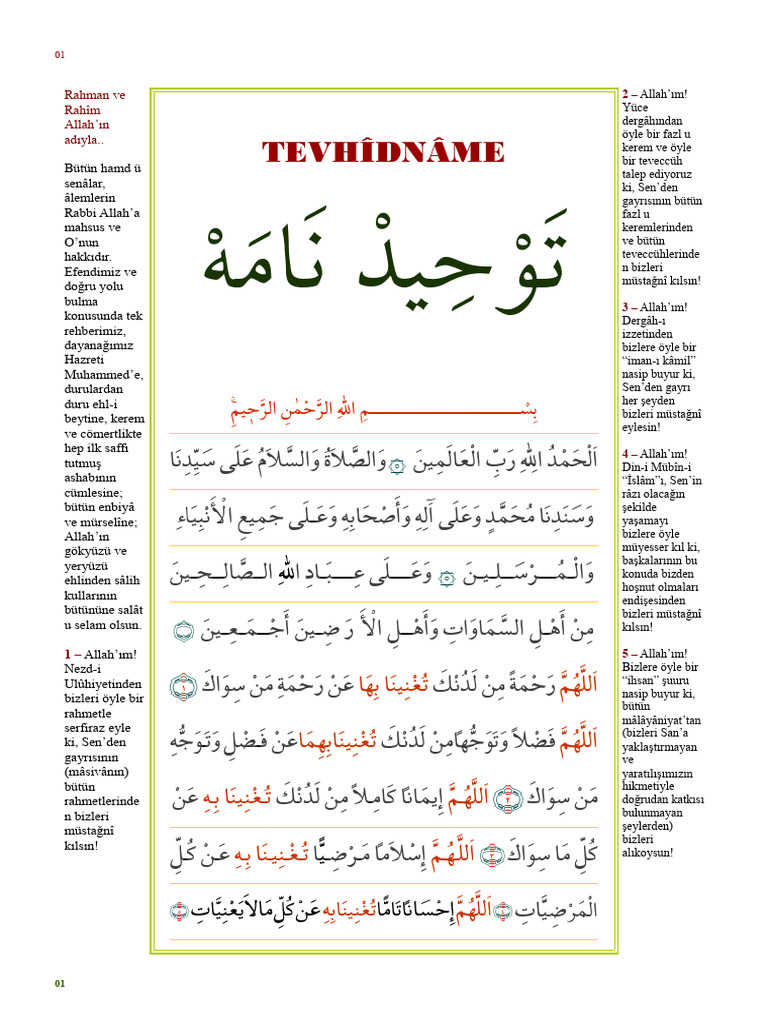 01
Rahman ve
Rahîm
Allah’ın
adıyla..
Bütün hamd ü
senâlar,
âlemlerin
Rabbi Allah’a
mahsus ve
O’nun
hakkıdır.
Efendimiz ve
doğru yolu
bulma
konusunda tek
rehberimiz,
dayanağımız
Hazreti
Muhammed’e,
durulardan
duru ehl-i
beytine, kerem
ve cömertlikte
hep ilk saffi
tutmuş
ashabının
cümlesine;
bütün enbiyâ
ve mürselîne;
Allah’ın
gökyüzü ve
yeryüzü
ehlinden sâlih
kullarının
bütününe salât
u selam olsun.
1 – Allah’ım!
Nezd-i
Ulûhiyetinden
bizleri öyle bir
rahmetle
serfiraz eyle
ki, Sen’den
gayrısının
(mâsivânın)
bütün
rahmetlerinde
n bizleri
müstağnî
kılsın!
TEVHÎDNÂME
تَوْحِيدْ نَامَهْ
بِسْــــمِ اللهِ الرَّحْمٰنِ الرَّحِيمِ
اَلْحَمْدُ لِلهِ رَبِّ الْعَالَمِينَ ۝ وَالصَّلاَةُ وَالسَّلاَمُ عَلَى سَيِّدِنَا
وَسَنَدِنَا مُحَمَّدٍ وَعَلَى آلِهِ وَأَصْحَابِهِ وَعَلَى جَمِيعِ الْأَنْبِيَاءِ
وَالْمُرْسَلِينَ ۝ وَعَلَى عِبَادِ اللهِ الصَّالِحِينَ
مِنْ أَهْلِ السَّمَاوَاتِ وَأَهْلِ الْأَرَضِينَ أَجْمَعِينَ ۝
اَللَّهُمَّ رَحْمَةً مِنْ لَدُنْكَ تُغْنِينَا بِهَا عَنْ رَحْمَةِ مَنْ سِوَاكَ ۝١
اَللَّهُمَّ فَضْلاً وَتَوَجُّهًا مِنْ لَدُنْكَ تُغْنِينَا بِهِمَا عَنْ فَضْلِ وَتَوَجُّهِ
مَنْ سِوَاكَ ۝٢ اَللَّهُمَّ إِيمَانًا كَامِلاً مِنْ لَدُنْكَ تُغْنِينَا بِهِ عَنْ
كُلِّ مَا سِوَاكَ ۝٣ اَللَّهُمَّ إِسْلاَمًا مَرْضِيًّا تُغْنِينَا بِهِ عَنْ كُلِّ
الْمَرْضِيَّاتِ ۝٤ اَللَّهُمَّ إِحْسَانًا تَامًّا تُغْنِينَا بِهِ عَنْ كُلِّ مَا لاَ يَعْنِيَّاتِ ۝٥
2 – Allah’ım!
Yüce
dergâhından
öyle bir fazl u
kerem ve öyle
bir teveccüh
talep ediyoruz
ki, Sen’den
gayrısının bütün
fazl u
keremlerinden
ve bütün
teveccühlerinde
n bizleri
müstağnî kılsın!
3 – Allah’ım!
Dergâh-ı
izzetinden
bizlere öyle bir
“iman-ı kâmil”
nasip buyur ki,
Sen’den gayrı
her şeyden
bizleri müstağnî
eylesin!
4 – Allah’ım!
Din-i Mübîn-i
“İslâm”ı, Sen’in
râzı olacağın
şekilde
yaşamayı
bizlere öyle
müyesser kıl ki,
başkalarının bu
konuda bizden
hoşnut olmaları
endişesinden
bizleri müstağnî
kılsın!
5 – Allah’ım!
Bizlere öyle bir
“ihsan” şuuru
nasip buyur ki,
bütün
mâlâyâniyat’tan
(bizleri San’a
yaklaştırmayan
ve
yaratılışımızın
hikmetiyle
doğrudan katkısı
bulunmayan
şeylerden)
bizleri
alıkoysun!
01